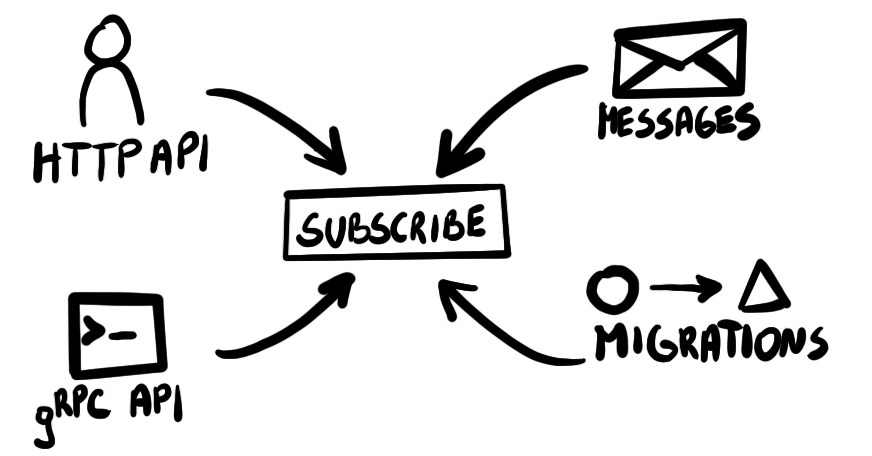 HTTP API
MESSAGES
SUBSCRIBE
>_
gRPC API
MIGRATIONS